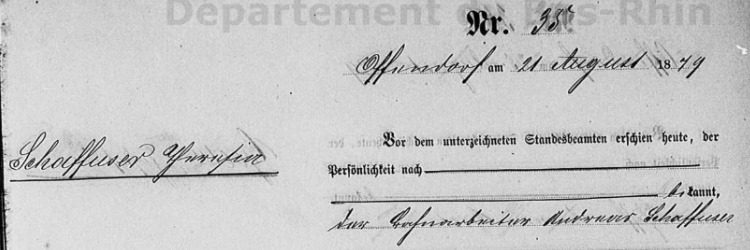 Departement du Bas-Rhin
Nr. 35
Offendorf am 21 August 1879
Schaffuser Theresia
Vor dem unterzeichneten Standesbeamten erschien heute, der
Persönlichkeit nach
bekannt,
der Bahnarbeiter Andreas Schaffuser